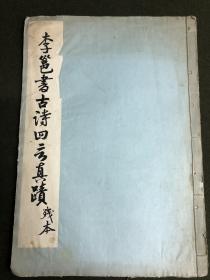 李邕書古詩四言真蹟 残本